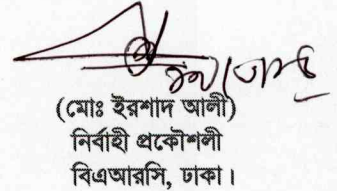 (মোঃ ইরশাদ আলী)
নির্বাহী প্রকৌশলী
বিএআরসি, ঢাকা।